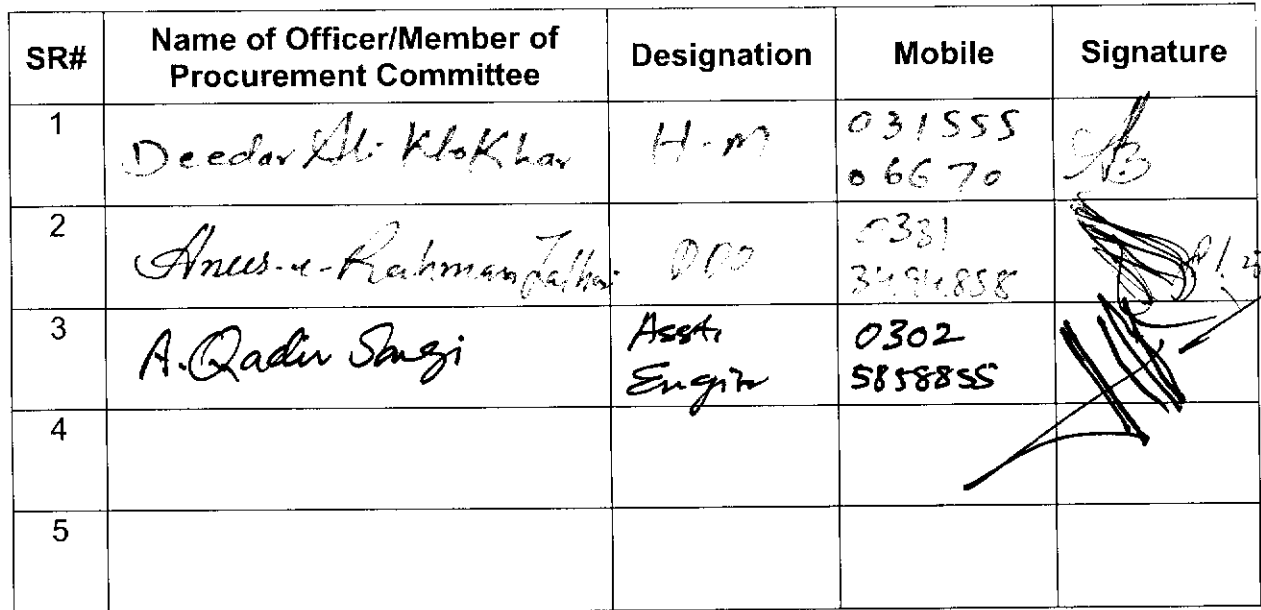 SR# Name of Officer/Member of Procurement Committee Designation Mobile Signature
1 Deedar Ali Khokhar H.M 031555
06670
2 Anees-u-Rahman DDO 0331
3
A. Qadir Sangi Asstt. 0302
Engir 5858855
4
5